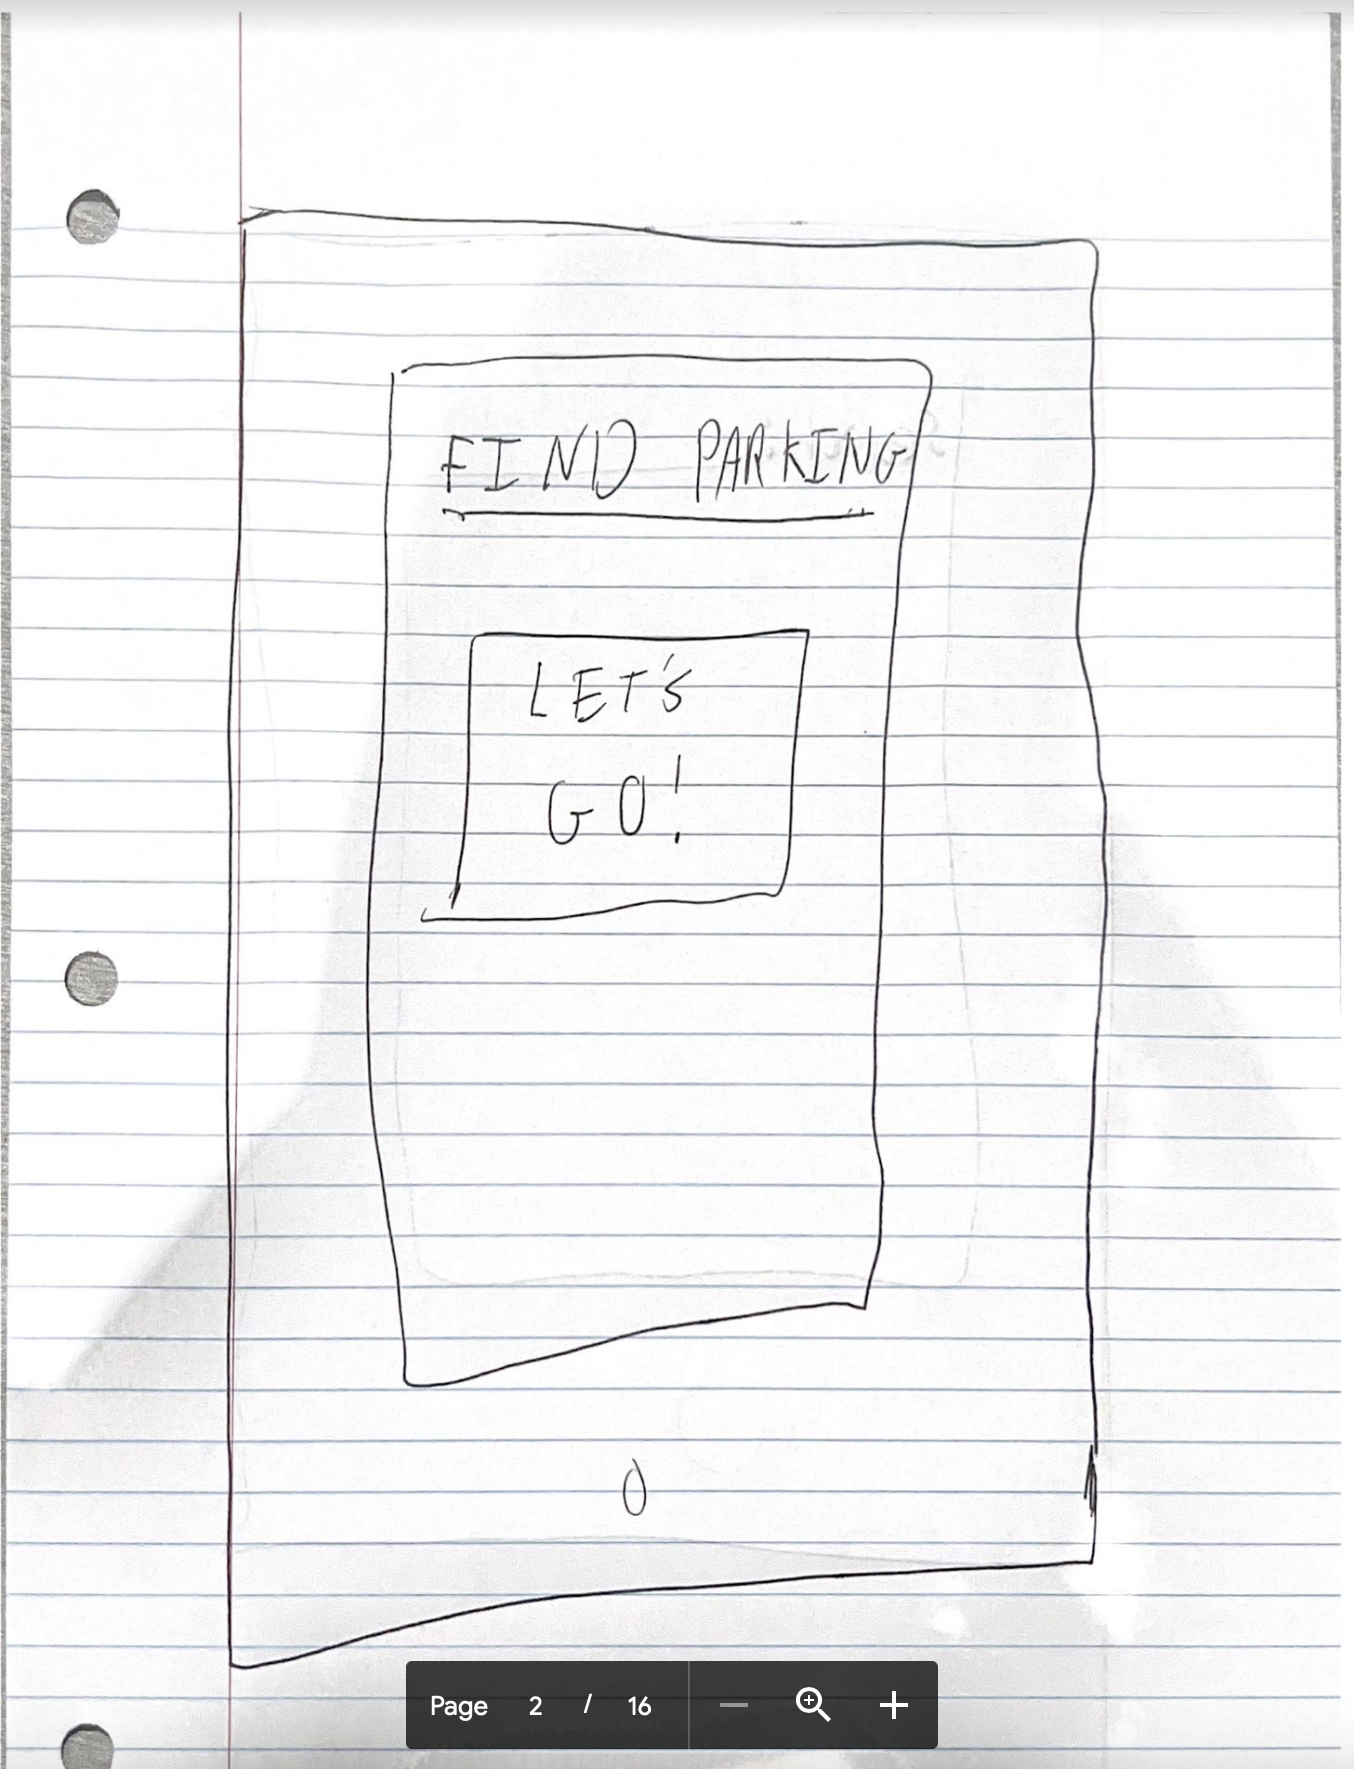 FIND PARKING
LET'S
GO!
Page 2 / 16